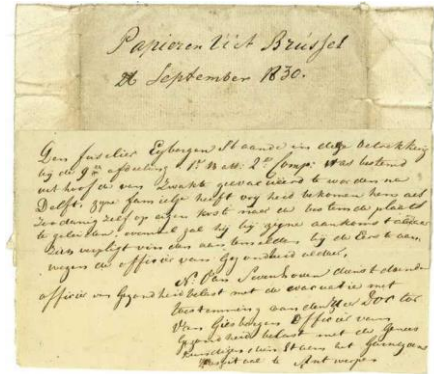 Papieren Uit Brussel
26 September 1830.
Den fuselier Eybergen Staande in deze betrekking
bij de 9de afdeling 1e B 2e Comp: was bestemd
uit hoofde van Zwakte geevacueerd te worden na
Delft, zyne familje heeft vryheid bekomen hem als
Zoodanig zelf op eigen kost naar de bestemde plaats
te geleiden, evenwel zal hij bij zyne aankomst
Zien verpligt vinden aan te melden bij de Eerste aan
wegens de officier van Gezondheid aldaar,
N. Van dienst doende
officier van Gezondheid belast met de evacuatie met
toestemming van den Doctor
Van Giesbergen Officier van
Gezondheid belast met de Genees
kundige dienst
Hospitaal te Antwerpen